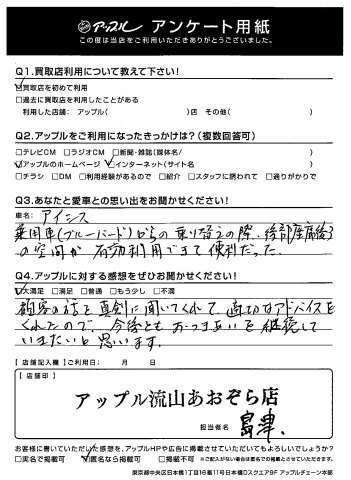 アップル アンケート用紙
この度は当店をご利用いただきありがとうございました。
Q1.買取店利用について教えて下さい!
☑買取店を初めて利用
□過去に買取店を利用したことがある
利用した店舗: アップル( )店 その他( )
Q2.アップルをご利用になったきっかけは?(複数回答可)
□テレビCM □ラジオCM □新聞・雑誌(媒体名/ )
☑アップルのホームページ ☑インターネット(サイト名 )
□チラシ □DM □利用経験があるので □紹介 □スタッフに誘われて □通りがかりで
Q3.あなたと愛車との思い出をお聞かせください!
車名: アイシス
乗用車(ブルーバード)からの乗り替えの際、後部座席後ろ
の空間が有効利用できて便利だった。
Q4.アップルに対する感想をぜひお聞かせください!
☑大満足 □満足 □普通 □もう少し □不満
顧客の話を真剣に聞いてくれて、適切なアドバイスを
くれたので、今後ともおつきあいを継続して
いきたいと思います。
【店舗記入欄】ご利用日: 月 日
【店舗印】
アップル流山あおぞら店
担当者名 島津
お客様に書いていただいた感想を、アップルHPや広告に掲載させていただいてもよろしいでしょうか?
□実名で掲載可 ☑匿名なら掲載可 □掲載不可 ※ご記入がない場合は匿名での掲載とさせていただきます。
東京都中央区日本橋1丁目16番11号日本橋Dスクエア9F アップルチェーン本部